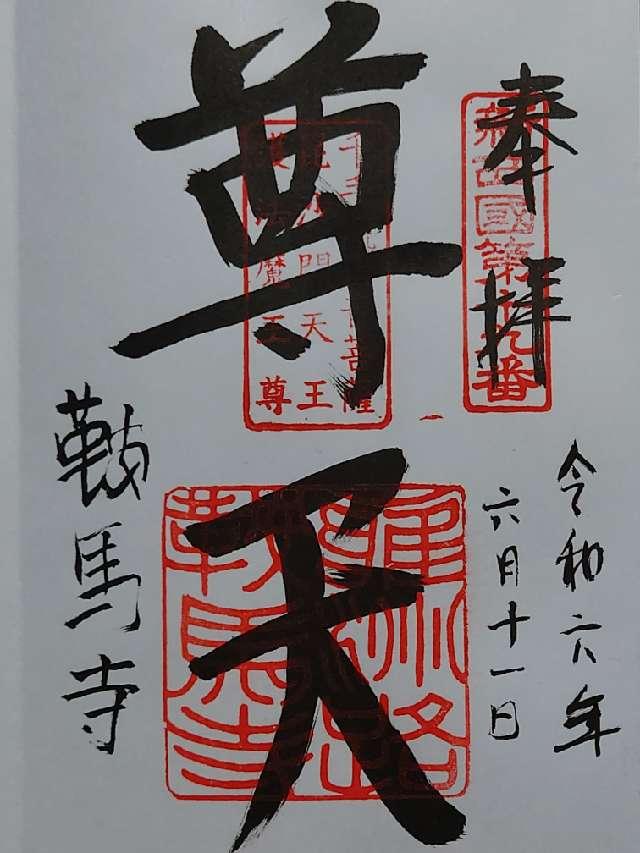 奉拝
令和六年
六月十一日
尊天
鞍馬寺
千手観世音菩薩
毘沙門天王
護法魔王尊
鞍馬寺